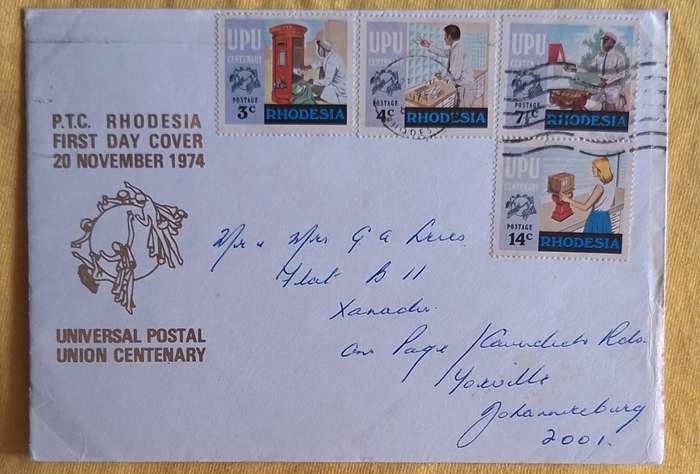 UPU
CENTENARY
POSTAGE
3c
RHODESIA
UPU
CENTENARY
POSTAGE
4c
RHODESIA
UPU
CENTENARY
POSTAGE
RHODESIA
UPU
CENTENARY
POSTAGE
14c
RHODESIA
P.T.C. RHODESIA
FIRST DAY COVER
20 NOVEMBER 1974
UNIVERSAL POSTAL
UNION CENTENARY
Mr & Mrs G A
Flat B 11
Xanadu
Cnr Page / Cavendish Rds
Yeoville
Johannesburg
2001.